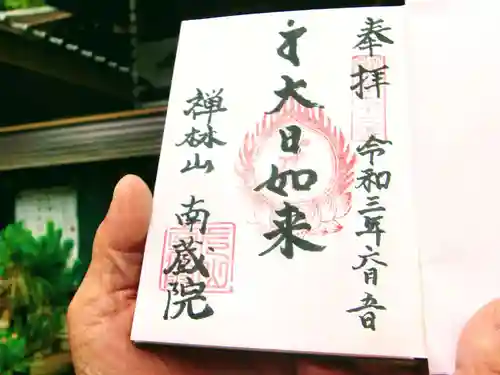 奉拝
令和三年六月五日
大日如来
禅林山
南蔵院